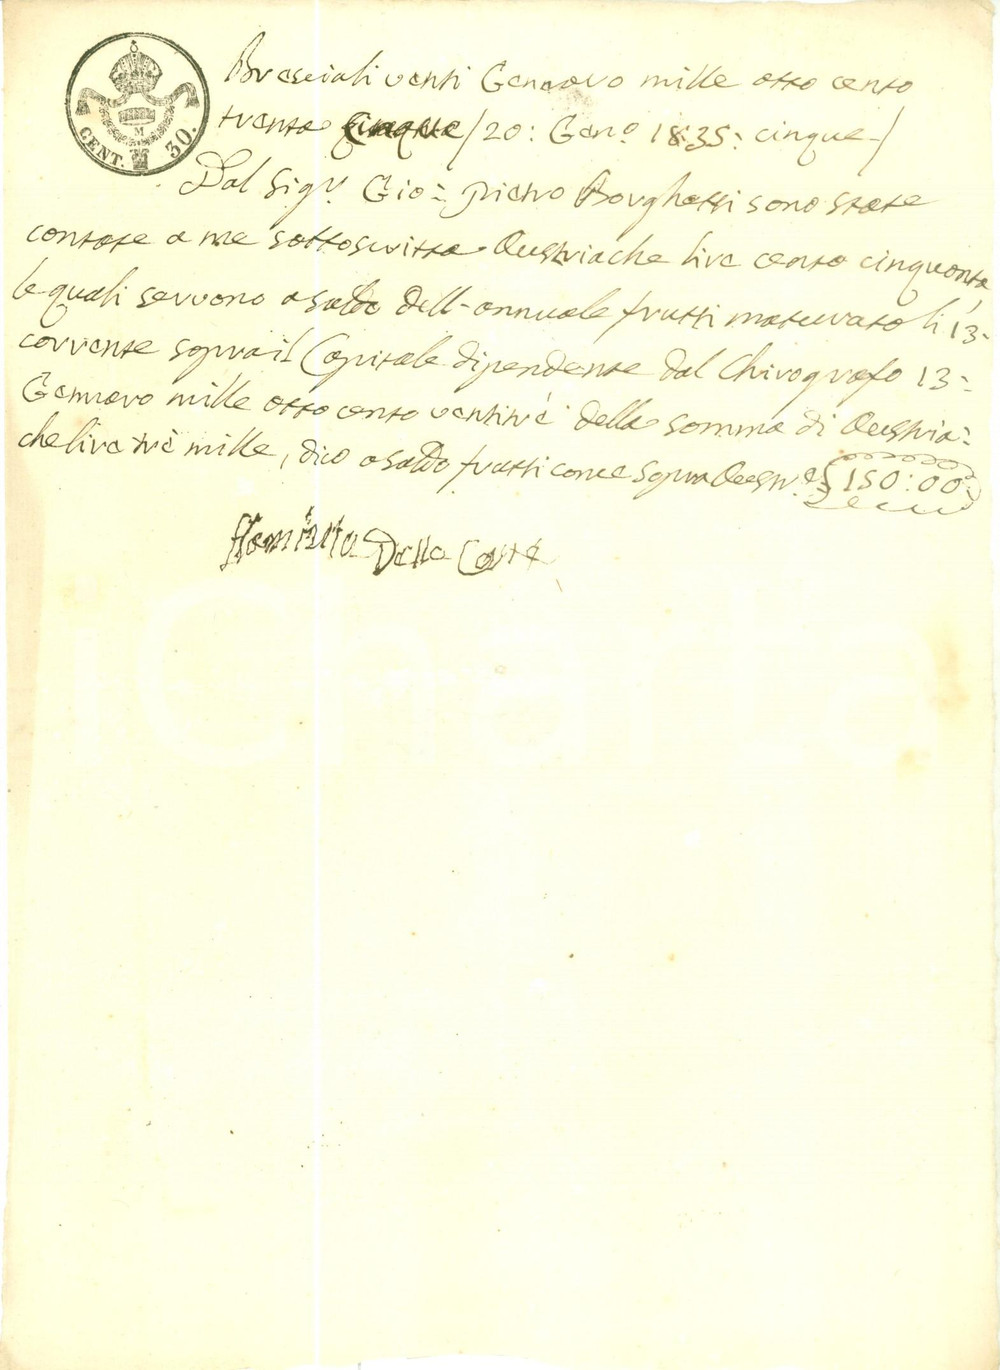 CENT. 30.
M
Brescia li venti Gennaro mille otto cento
trenta cinque /20: Gen.o 1835: cinque-/
Dal Sig.r Gio: Pietro Borghetti sono state
contate a me sottoscritta Austriache lire cento cinquanta
le quali servono a saldo dell-annuale frutti maturato li 13-
corrente sopra il Capitale dipendente dal Chirografo 13-
Gennaro mille otto cento ventitrè della somma di Austria:
che lire trè mille, dico a saldo frutti come sopra Austr.e 150:00
Della Corte
iCharta